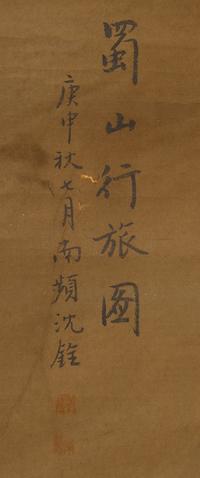 蜀山行旅圖
庚申秋七月南蘋沈銓